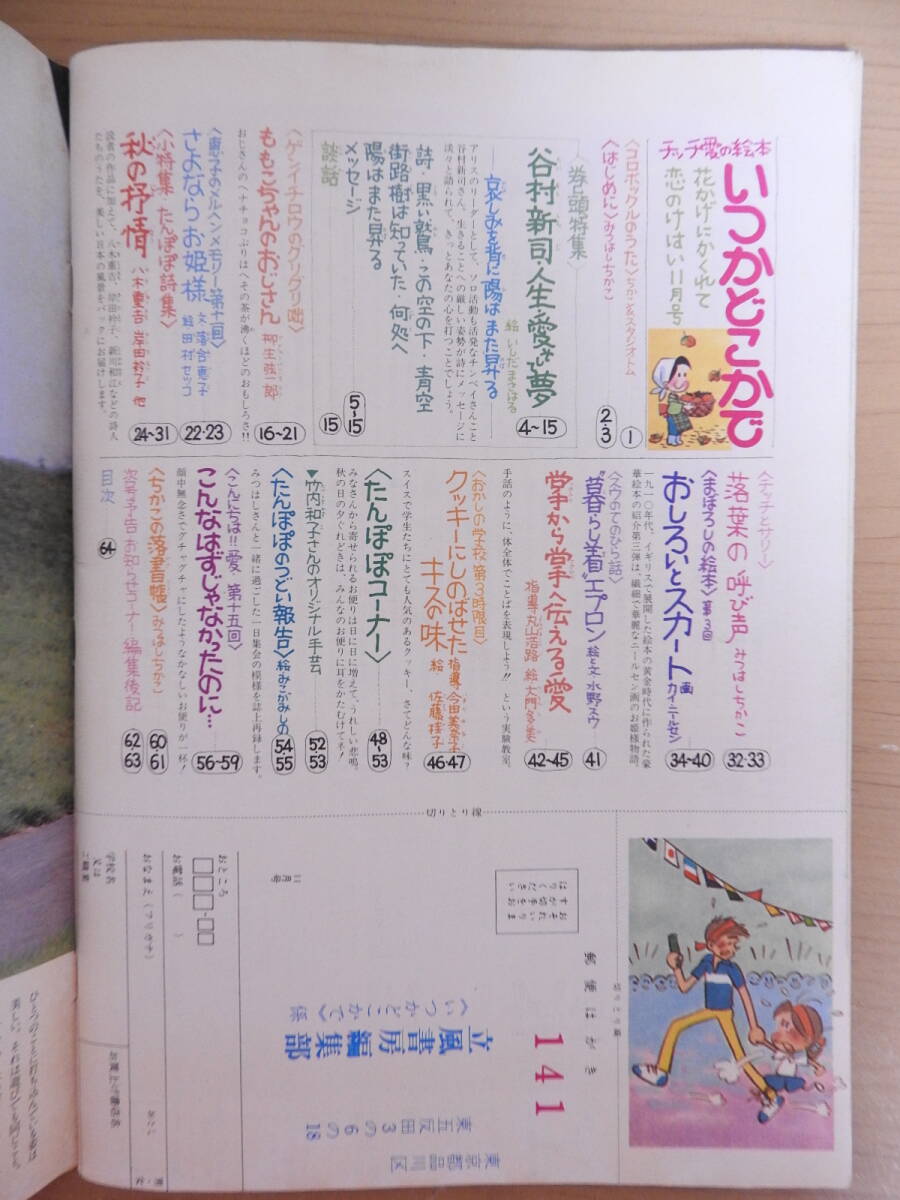 チッチ愛の絵本
いつかどこかで
花かげにかくれて
恋のけはい11月号
〈コロボックルのうた〉ちかこ&スタジオトム
1
〈はじめに〉みつはしちかこ
2・3
〈巻頭特集〉
谷村新司・人生・愛そして夢
絵 いしだまさはる
4〜15
哀しみを背に陽はまた昇る
アリスのリーダーとして、ソロ活動も活発なチンペイさんこと
谷村新司さん。生きることへの厳しい姿勢が詩にメッセージに
淡々と語られて、きっとあなたの心を打つことでしょう。
詩・黒い鷲・この空の下・青空
街路樹は知っていた・何処へ
陽はまた昇る
メッセージ
5〜15
談話
15
〈ゲンイチロウのクリクリ図〉
ももこちゃんのおじさん 柳生弦一郎
16〜21
おじさんのヘナチョコぶりはへその茶が沸くほどのおもしろさ!!
〈恵子のメルヘンメモリー第十一回〉
さよならお姫様 文 落合恵子 絵 田村セツコ
22・23
〈小特集・たんぽぽ詩集〉
秋の抒情 八木重吉 岸田衿子 他
24〜31
読者の作品に加えて、八木重吉、岸田衿子、新川和江などの詩人
たちのうたを、美しい日本の風景をバックにお届けします。
〈チッチとサリー〉
落葉の呼び声 みつはしちかこ
32・33
〈まぼろしの絵本〉第3回
おしろいとスカート 画 カイ・ニールセン
34〜40
一九一〇年代、イギリスで展開した絵本の黄金時代に作られた豪
華絵本の紹介第三弾は、繊細で華麗なニールセン画のお姫様物語。
〈スウのてのひら話〉
"暮らし着"エプロン 絵と文・水野スウ
41
掌から掌へ伝える愛 指導 丸山浩路 絵 大門多美
42〜45
手話のように、体全体でことばを表現しよう!! という実験教室。
〈おかしの学校・第3時限目〉
クッキーにしのばせたキスの味 指導 今田美奈子 絵 佐藤桂子
46・47
スイスで学生たちにとても人気のあるクッキー、さてどんな味?
〈たんぽぽコーナー〉
48〜53
みなさんから寄せられるお便りは日に日に増えて、うれしい悲鳴。
秋の日の夕ぐれどきは、みんなのお便りに耳をかたむけてネ!
▼竹内和子さんのオリジナル手芸
52・53
〈たんぽぽのつどい報告〉絵 みこがみしの
54・55
みつはしさんと一緒に過ごした一日集会の模様を誌上再録します。
〈こんにちは!!愛・第十五回〉
こんなはずじゃなかったのに…
56〜59
顔中無念さでグチャグチャにしたようなかなしいお便りが一杯!
〈ちかこの落書帳〉みつはしちかこ
60・61
次号予告 お知らせコーナー 編集後記
62・63
目次
64
切りとり線
切りとり線
郵便はがき
141
おそれいりま
すが切手をお
はりください
東京都品川区
東五反田3の6の18
立風書房編集部
《いつかどこかで》係
11月号
おところ
お電話( )
おなまえ(フリガナ)
おとし
男・女
学校名
又は
ご職業
お買上げ書店名